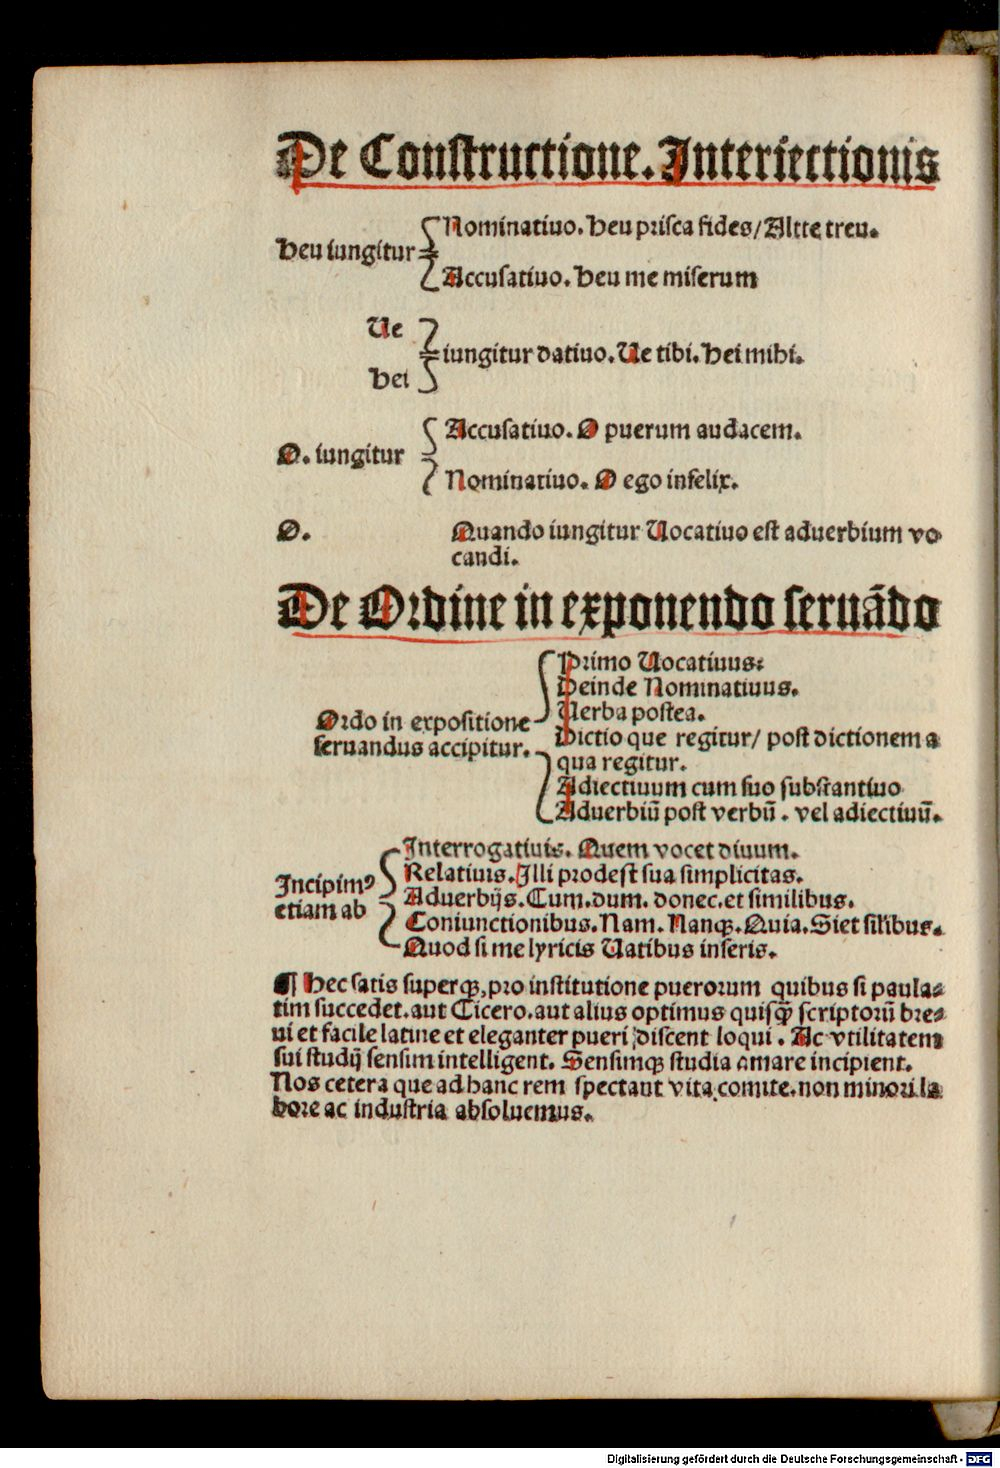 De Constructione. Interiectionis
Nominatiuo. Heu prisca fides/ Altte treu.
Heu iungitur
Accusatiuo. Heu me miserum
Ue
iungitur datiuo. Ue tibi. Hei mihi.
Hei
Accusatiuo. O puerum audacem.
O. iungitur
Nominatiuo. O ego infelix.
O. Quando iungitur Uocatiuo est aduerbium vo
candi.
De Ordine in exponendo seruãdo
Primo Uocatiuus:
Deinde Nominatiuus.
Uerba postea.
Ordo in expositione
seruandus accipitur.
Dictio que regitur/ post dictionem a
qua regitur.
Adiectiuum cum suo substantiuo
Aduerbiũ post verbũ. vel adiectiuũ.
Interrogatiuis. Quem vocet diuum.
Relatiuis. Illi prodest sua simplicitas.
Incipimꝰ
etiam ab
Aduerbijs. Cum. dum. donec. et similibus.
Coniunctionibus. Nam. Nanqꝫ. Quia. Si et silibus.
Quod si me lyricis Uatibus inseris.
¶ Hec satis superqꝫ, pro institutione puerorum quibus si paula⸗
tim succedet. aut Cicero. aut alius optimus quisqꝫ scriptorũ bre⸗
ui et facile latine et eleganter pueri discent loqui. Ac vtilitatem
sui studij sensim intelligent. Sensimqꝫ studia amare incipient.
Nos cetera que ad hanc rem spectant vita comite. non minori la
bore ac industria absoluemus.
Digitalisierung gefördert durch die Deutsche Forschungsgemeinschaft - DFG